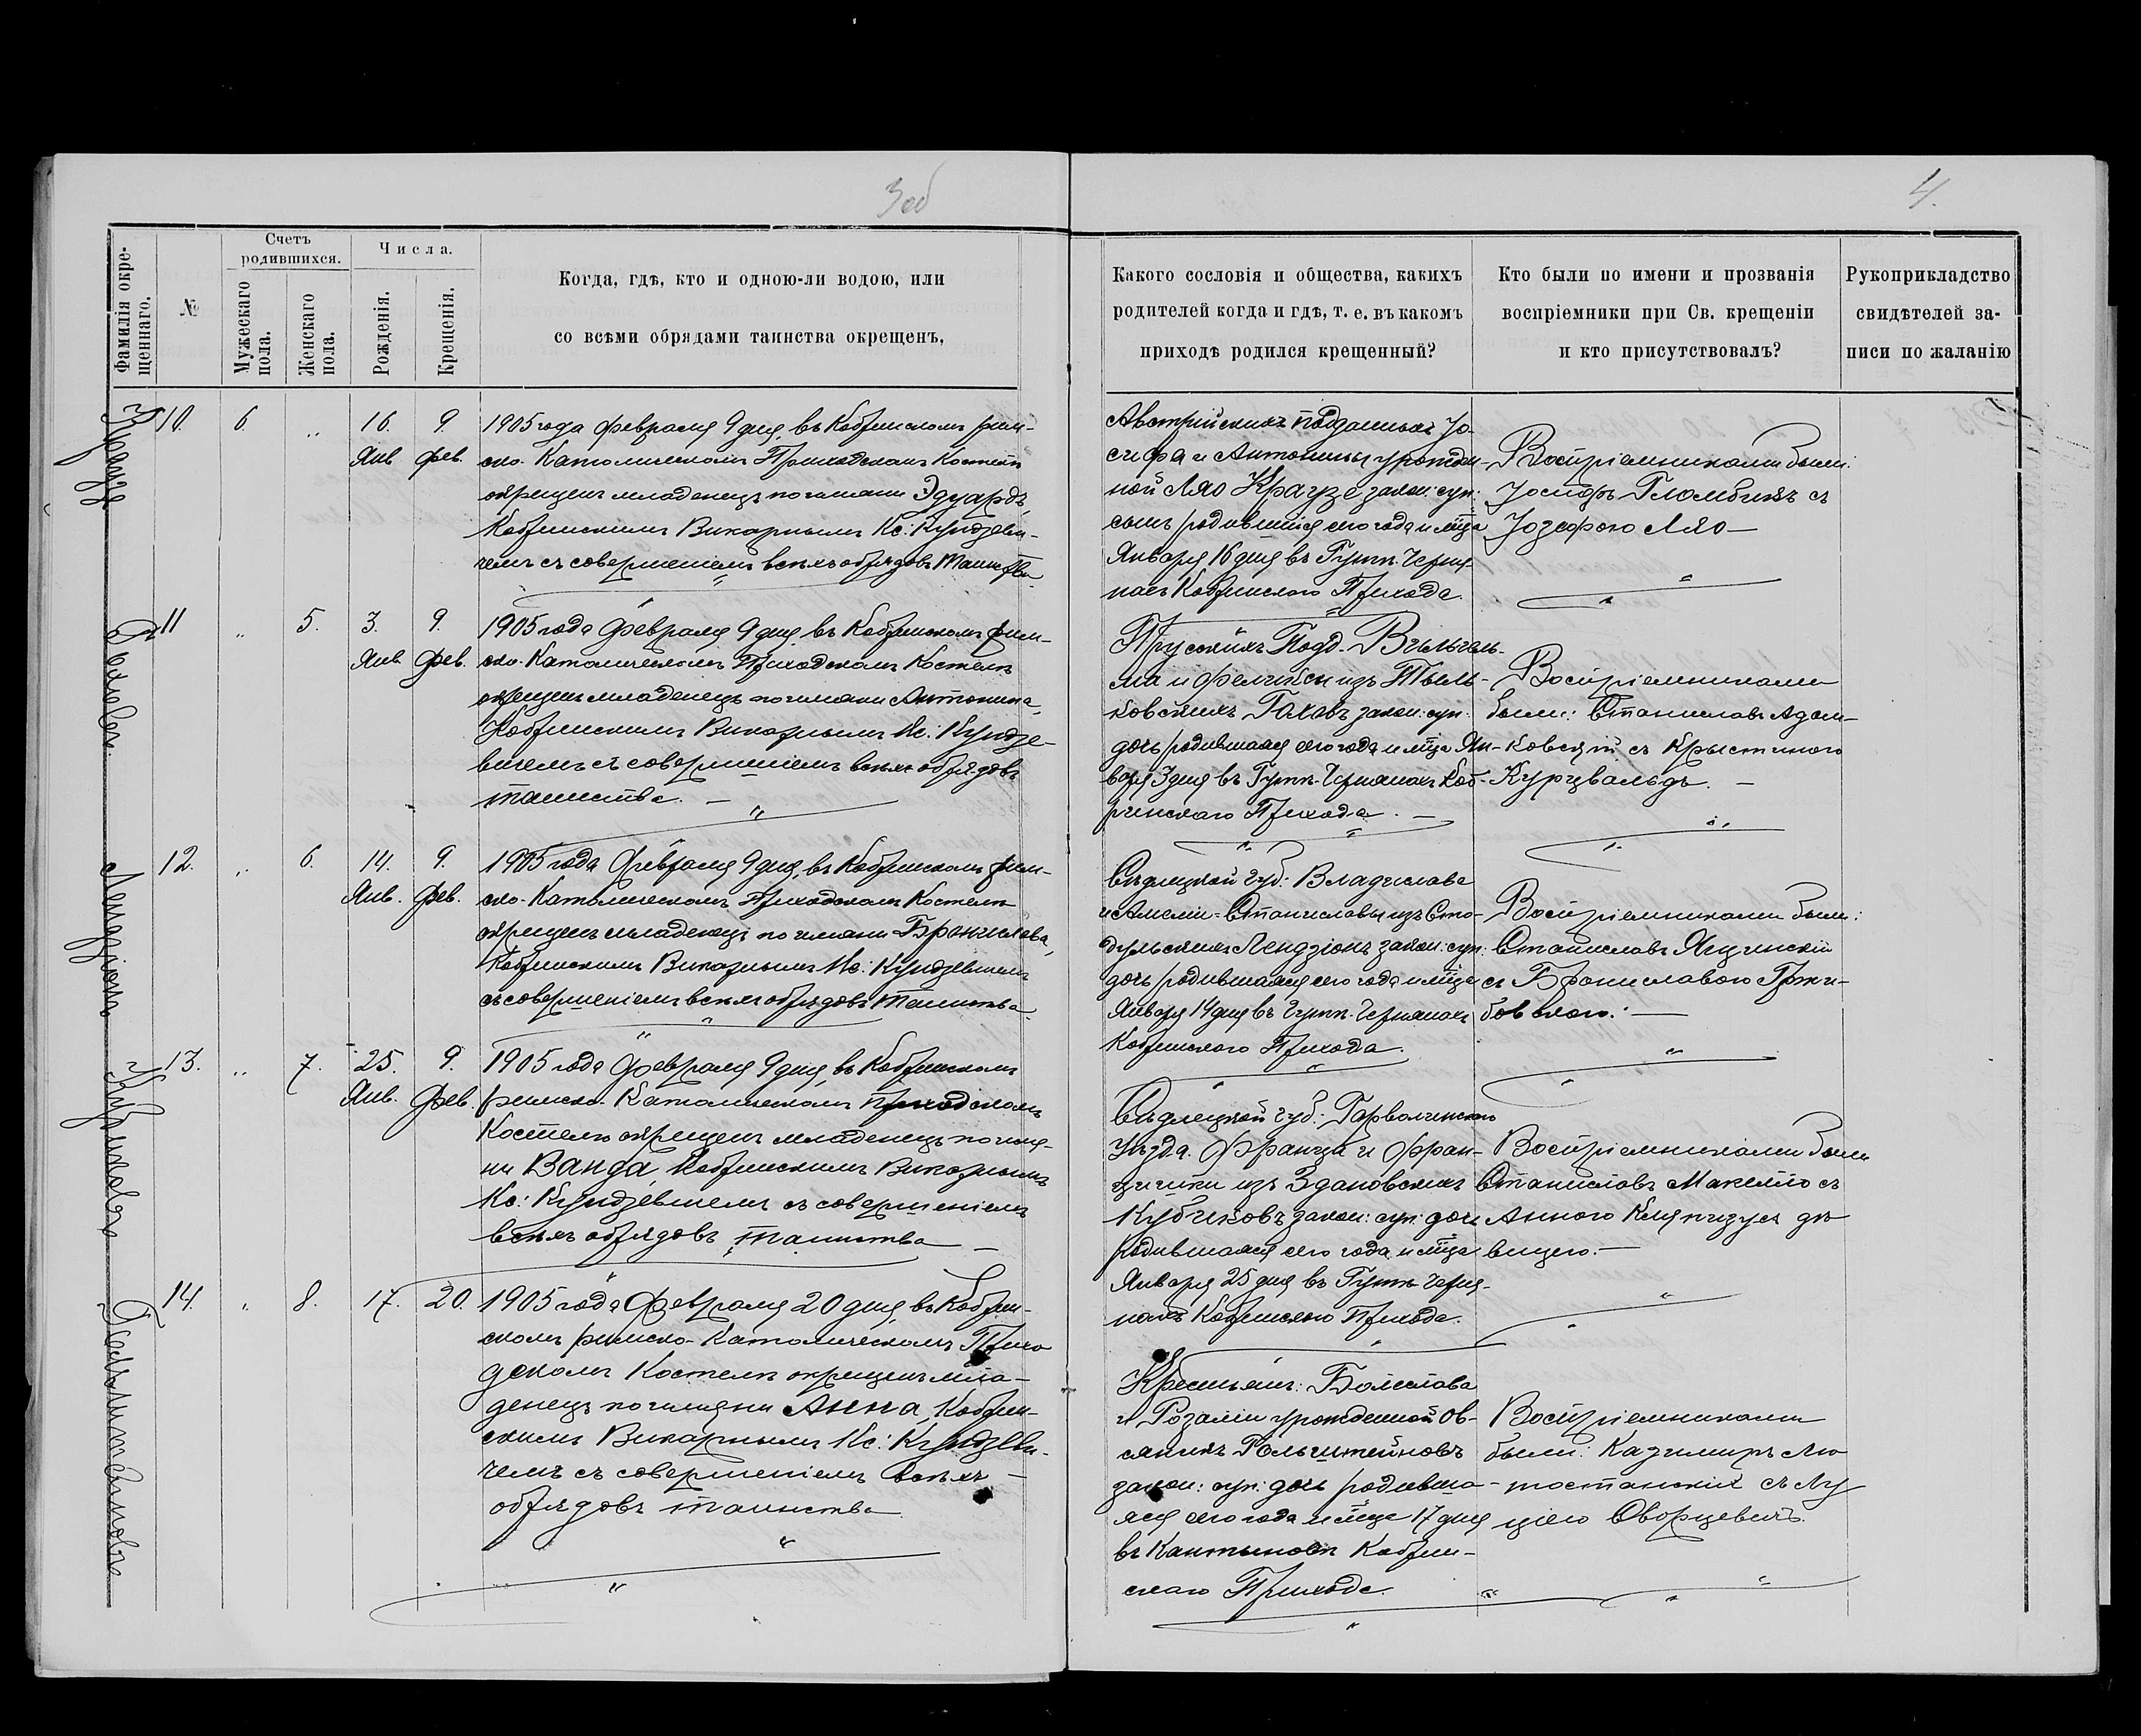 3 об
4.
Фамилія окре-
щеннаго.
№
Счетъ
родившихся.
Мужескаго
пола.
Женскаго
пола.
Числа.
Рожденія.
Крещенія.
Когда, гдѣ, кто и одною-ли водою, или
со всѣми обрядами таинства окрещенъ,
Какого сословія и общества, какихъ
родителей когда и гдѣ, т. е. въ какомъ
приходѣ родился крещенный?
Кто были по имени и прозванія
воспріемники при Св. крещеніи
и кто присутствовалъ?
Рукоприкладство
свидѣтелей за-
писи по жаланію
Краузе
10. 6. „ 16. 9.
Янв. Фев.
1905 года Февраля 9 дня, въ Кобринскомъ рим-
ско-Католическомъ Приходскомъ Костелѣ
окрещенъ младенецъ по имени Эдуардъ,
Кобринскимъ Викарнымъ Кс. Кундзеви-
чемъ съ совершеніемъ всѣхъ обрядовъ Таинства
Австрійскихъ подданныхъ Іо-
сифа и Антонины урожден-
ной Ляо Краузе закон: суп:
сынъ родившійся сего года и мца
Января 16 дня въ Гутѣ-Черня-
нахъ Кобринскаго Прихода.
Воспріемниками были:
Іосифъ Гломбикъ съ
Іозефою Ляо —
Гоховъ
11 „ 5. 3. 9.
Янв. Фев.
1905 года Февраля 9 дня въ Кобринскомъ рим-
ско-Католическомъ Приходскомъ Костелѣ
окрещенъ младенецъ по имени Антонина,
Кобринскимъ Викарнымъ Кс: Кундзе-
вичемъ съ совершеніемъ всѣхъ обрядовъ
таинства. —
Прусскихъ Подд. Вильгель-
ма и Фелиціи изъ Тыль-
ковскихъ Гоховъ закон: суп:
дочь родившаяся сего года и мца Ян-
варя 3 дня въ Гутѣ-Чернянахъ Коб-
ринскаго Прихода. —
Воспріемниками
были: Станиславъ Адам-
ковскій съ Крыстиною
Курцвальдъ. —
Лендзіонъ
12. „ 6. 14. 9.
Янв. Фев.
1905 года Февраля 9 дня, въ Кобринскомъ рим-
ско-Католическомъ Приходскомъ Костелѣ
окрещенъ младенецъ по имени Бронислава,
Кобринскимъ Викарнымъ Кс: Кундзевичемъ
съ совершеніемъ всѣхъ обрядовъ Таинства.
Сѣдлецкой губ: Владислава
и Амеліи-Станиславы изъ Сто-
дульскихъ Лендзіонъ закон: суп:
дочь родившаяся сего года и мца
Января 14 дня въ Гутѣ-Чернянахъ
Кобринскаго Прихода.
Воспріемниками были:
Станиславъ Яцинскій
съ Брониславою Гржи-
бовскою. —
Кубиковъ
13. „ 7. 25. 9.
Янв. Фев.
1905 года Февраля 9 дня, въ Кобринскомъ
римско-Католическомъ Приходскомъ
Костелѣ окрещенъ младенецъ по име-
ни Ванда, Кобринскимъ Викарнымъ
Кс: Кундзевичемъ съ совершеніемъ
всѣхъ обрядовъ таинства —
Сѣдлецкой губ: Гарволинскаго
Уѣзда Франца и Фран-
цишки изъ Здановскихъ
Кубиковъ закон: суп: дочь
родившаяся сего года и мца
Января 25 дня въ Гутѣ-Черня-
нахъ Кобринскаго Прихода.
Воспріемниками были
Станиславъ Макелло съ
Анною дѣ-
вицею. —
Гольштейновъ
14. „ 8. 17. 20.
1905 года Февраля 20 дня, въ Кобрин-
скомъ римско-Католическомъ Прихо-
дскомъ Костелѣ окрещенъ мла-
денецъ по имени Анна, Кобрин-
скимъ Викарнымъ Кс: Кундзеви-
чемъ съ совершеніемъ всѣхъ —
обрядовъ таинства
Крестьянъ: Болеслава
и Розаліи урожденной Ов-
сяникъ Гольштейновъ
закон: суп: дочь родивша-
яся сего года и мца 17 дня
въ Кантыновѣ Кобрин-
скаго Прихода.
Воспріемниками
были: Казимиръ Лю-
тостанскій съ Лу-
ціею Оворцевичъ.